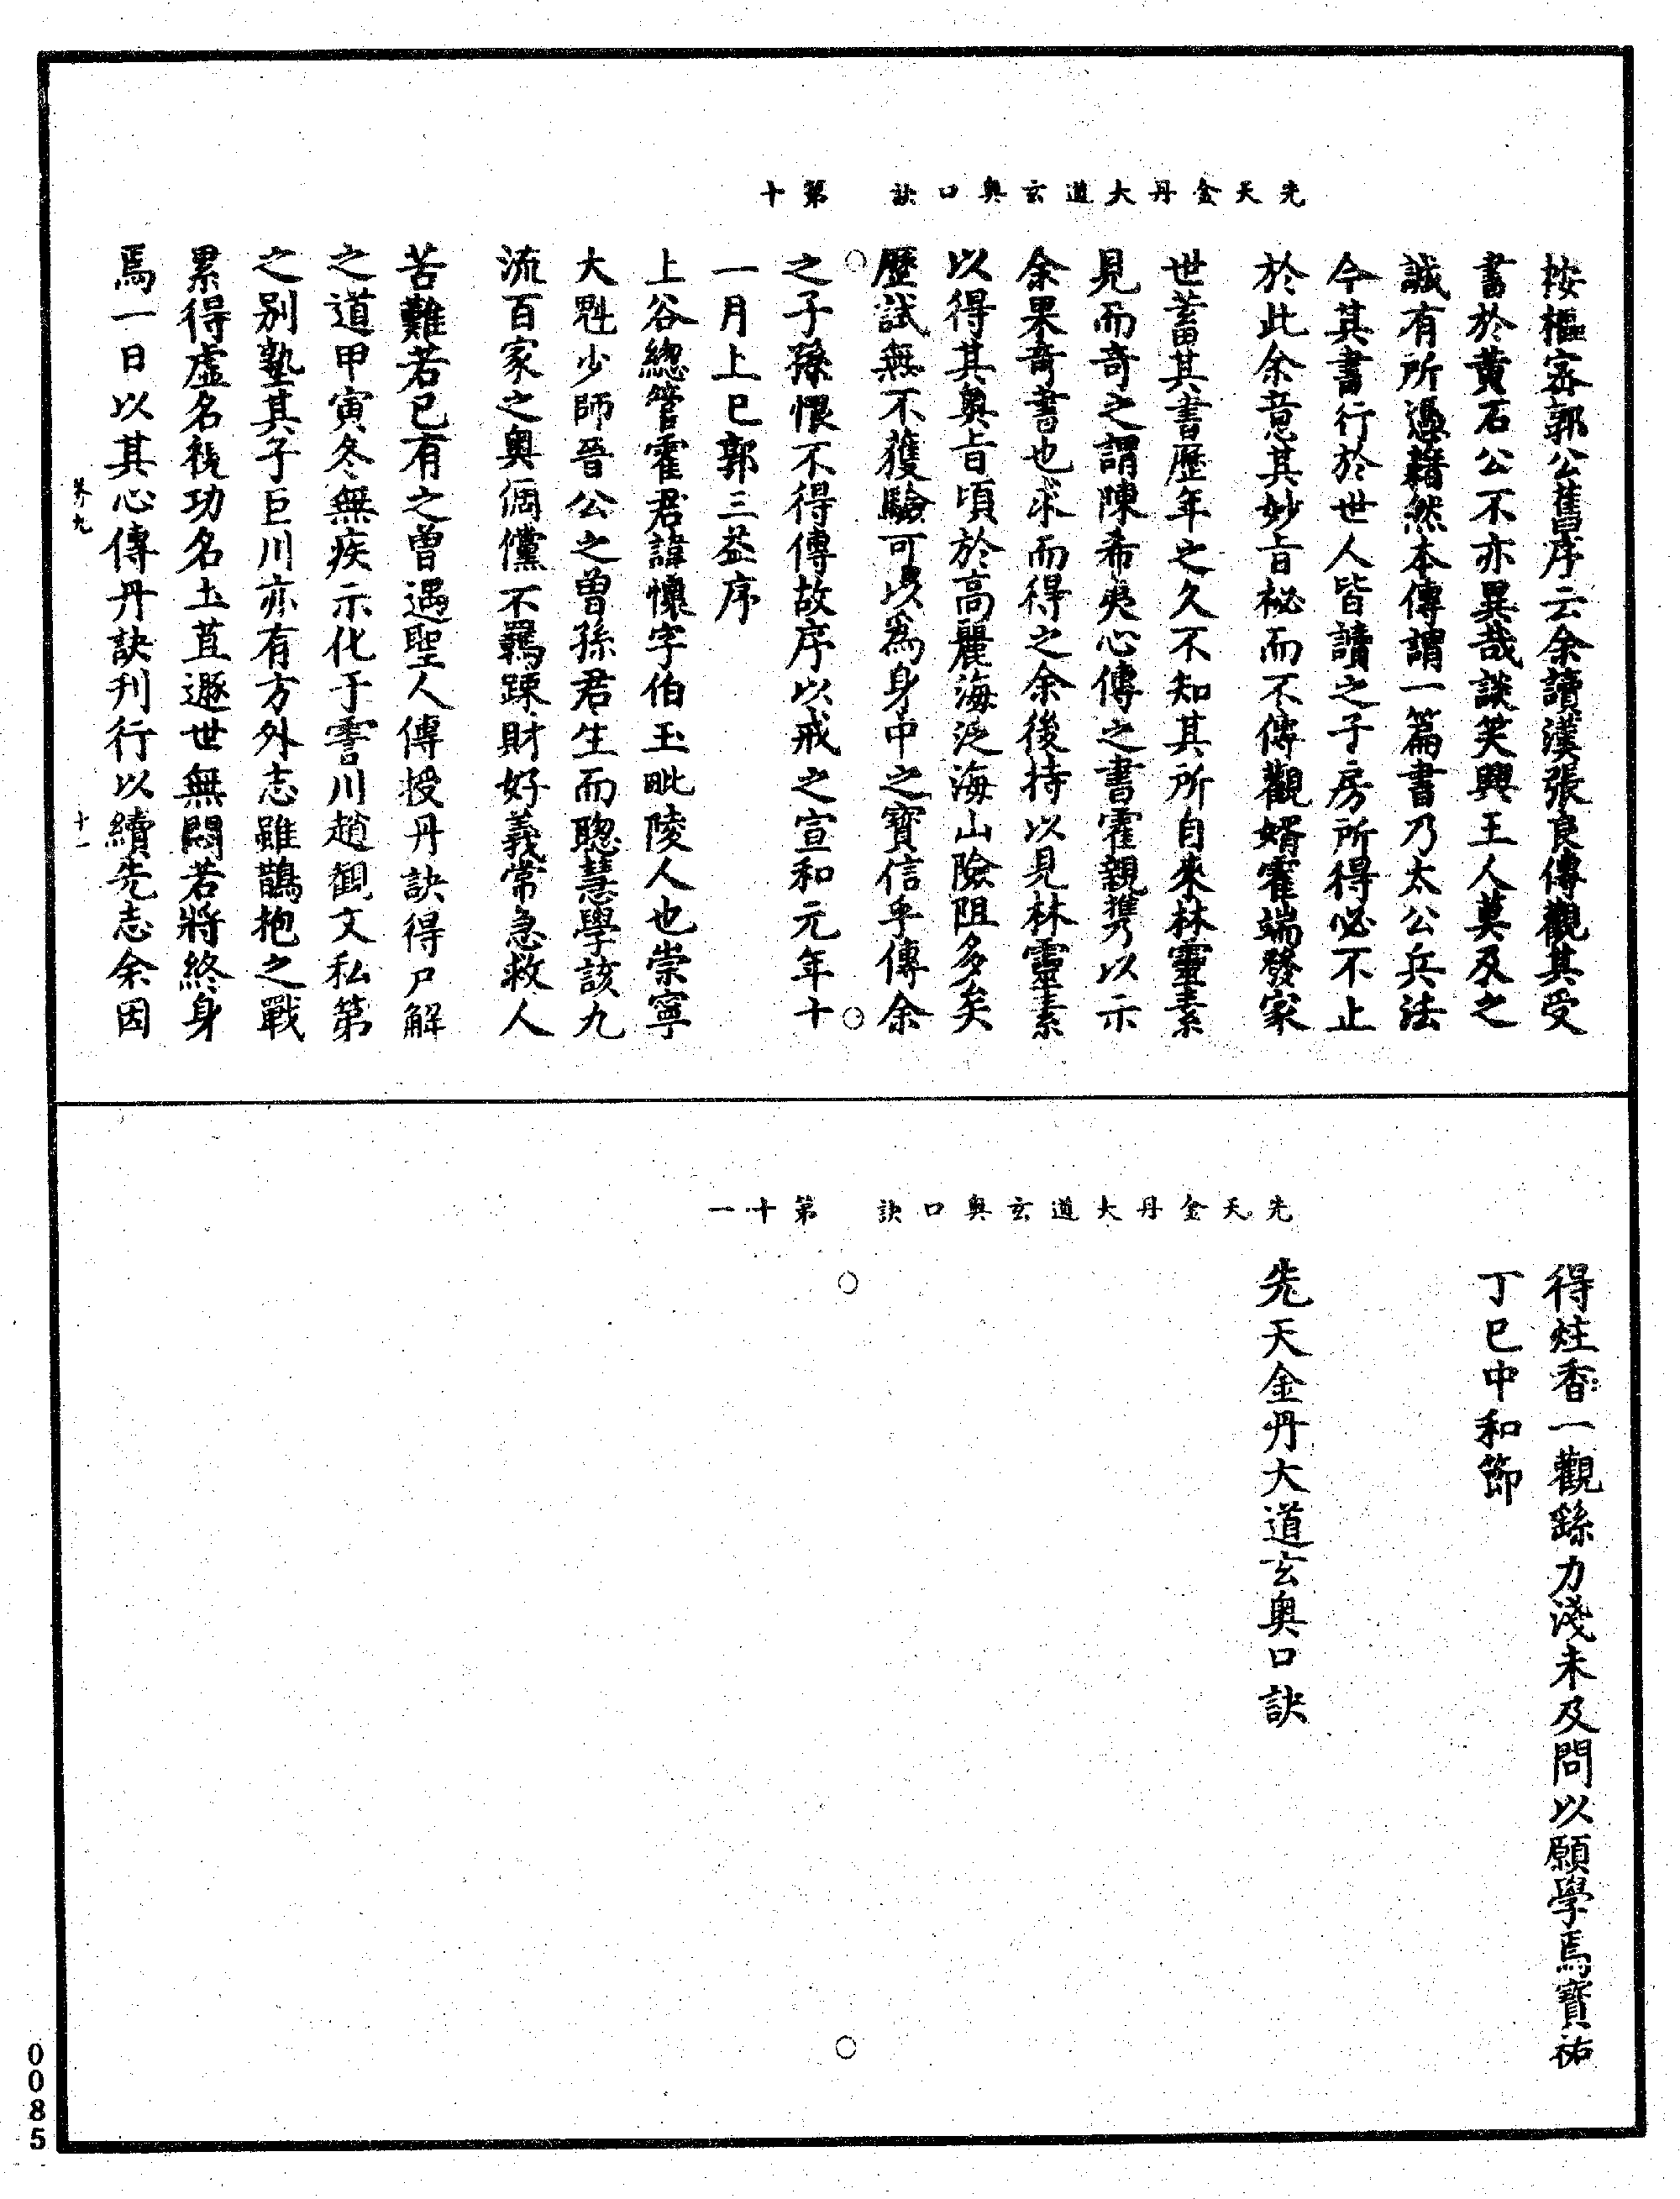 先天金丹大道玄奥口訣　第十
按樞密郭公舊序云余讀漢張良傳觀其受
書於黄石公不亦異哉談笑興王人莫及之
誠有所過藉然本傳謂一篇書乃太公兵法
今其書行於世人皆讀之子房所得必不止
於此余意其妙旨祕而不傳觀婿霍端發家
世蓄其書歷年之久不知其所自來林靈素
見而奇之謂陳希夷心傳之書霍親攜以示
余果奇書也求而得之余後持以見林靈素
以得其奥旨頃於高麗海泛海山險阻多矣
歷試無不獲驗可以為身中之寶信乎傳余
之子孫恨不得傳故序以戒之宣和元年十
一月上巳郭三益序
上谷總管霍君諱懷字伯玉毗陵人也崇寧
大魁少師晉公之曾孫君生而聰慧學該九
流百家之奥倜儻不羈踈財好義常急救人
苦難若已有之曾遇聖人傳授丹訣得尸解
之道甲寅冬無疾示化于霅川趙觀文私第
之别墊其子巨川亦有方外志雖鵲抱之戰
累得虛名視功名土苴遯世無悶若將終身
焉一日以其心傳丹訣刊行以續先志余因
卷九　十一
先天金丹大道玄奥口訣　第十一
得炷香一觀繇力淺未及問以願學焉寶祐
丁巳中和節
先天金丹大道玄奥口訣
0085